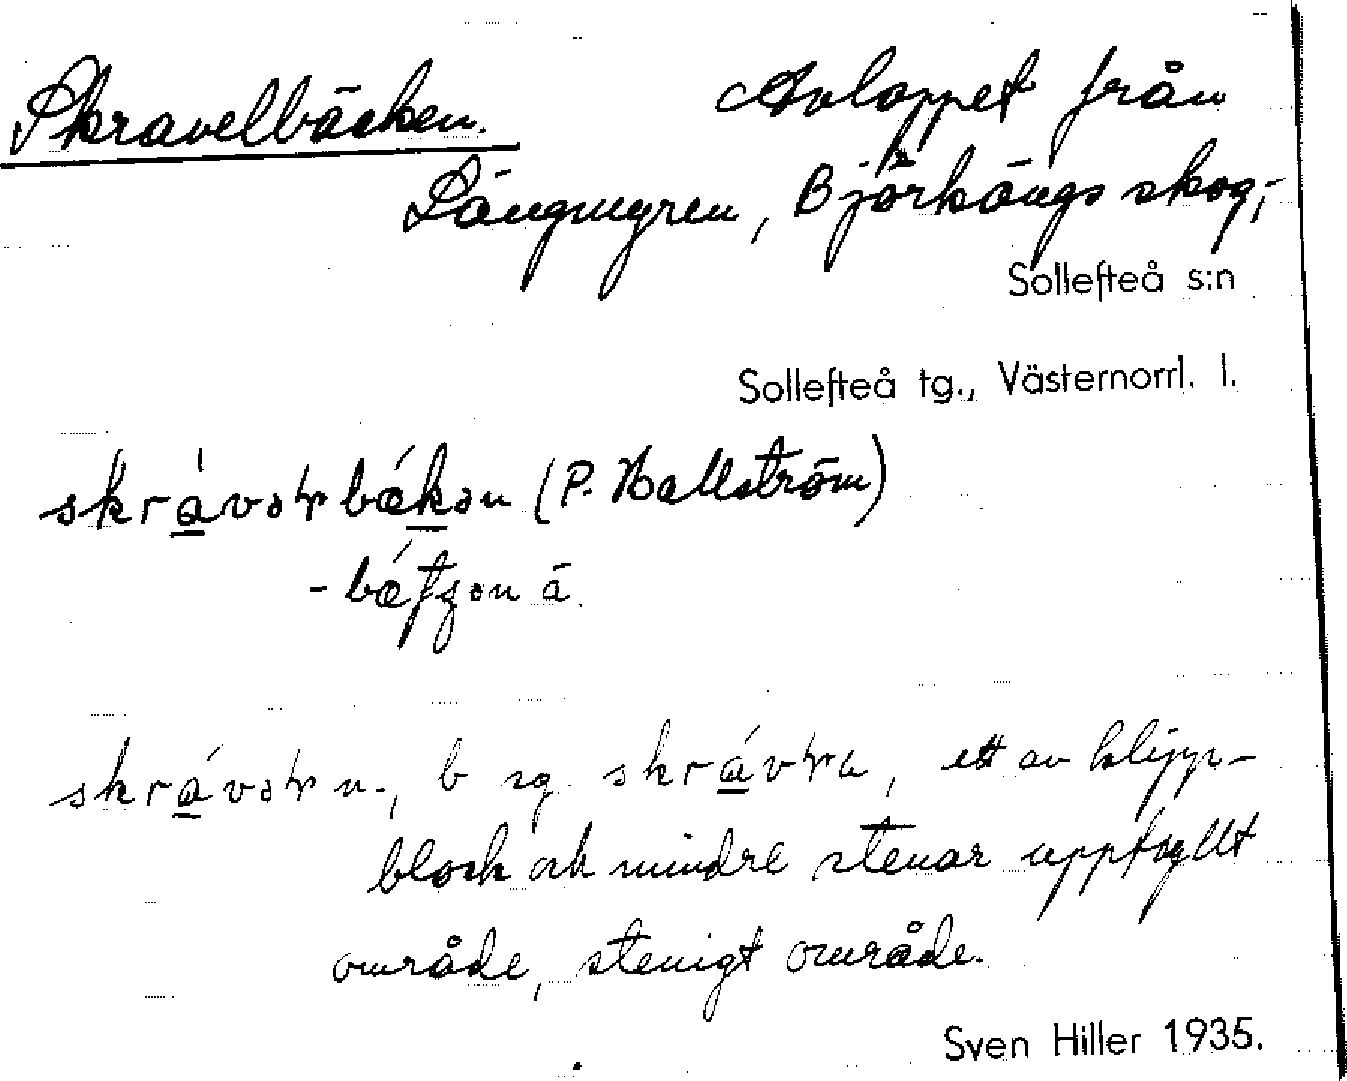 Skravelbäcken. Avloppet från
Långmyren, Björkängs skog,
Sollefteå s:n
Sollefteå tg., Västernorrl. l.
skrávəɫbǽkən (P. Hallström)
- bǽtʃən ä.
skrávəɫ n., b sg. skrávɫa, ett av klipp-
block och mindre stenar uppfyllt
område, stenigt område.
Sven Hiller 1935.